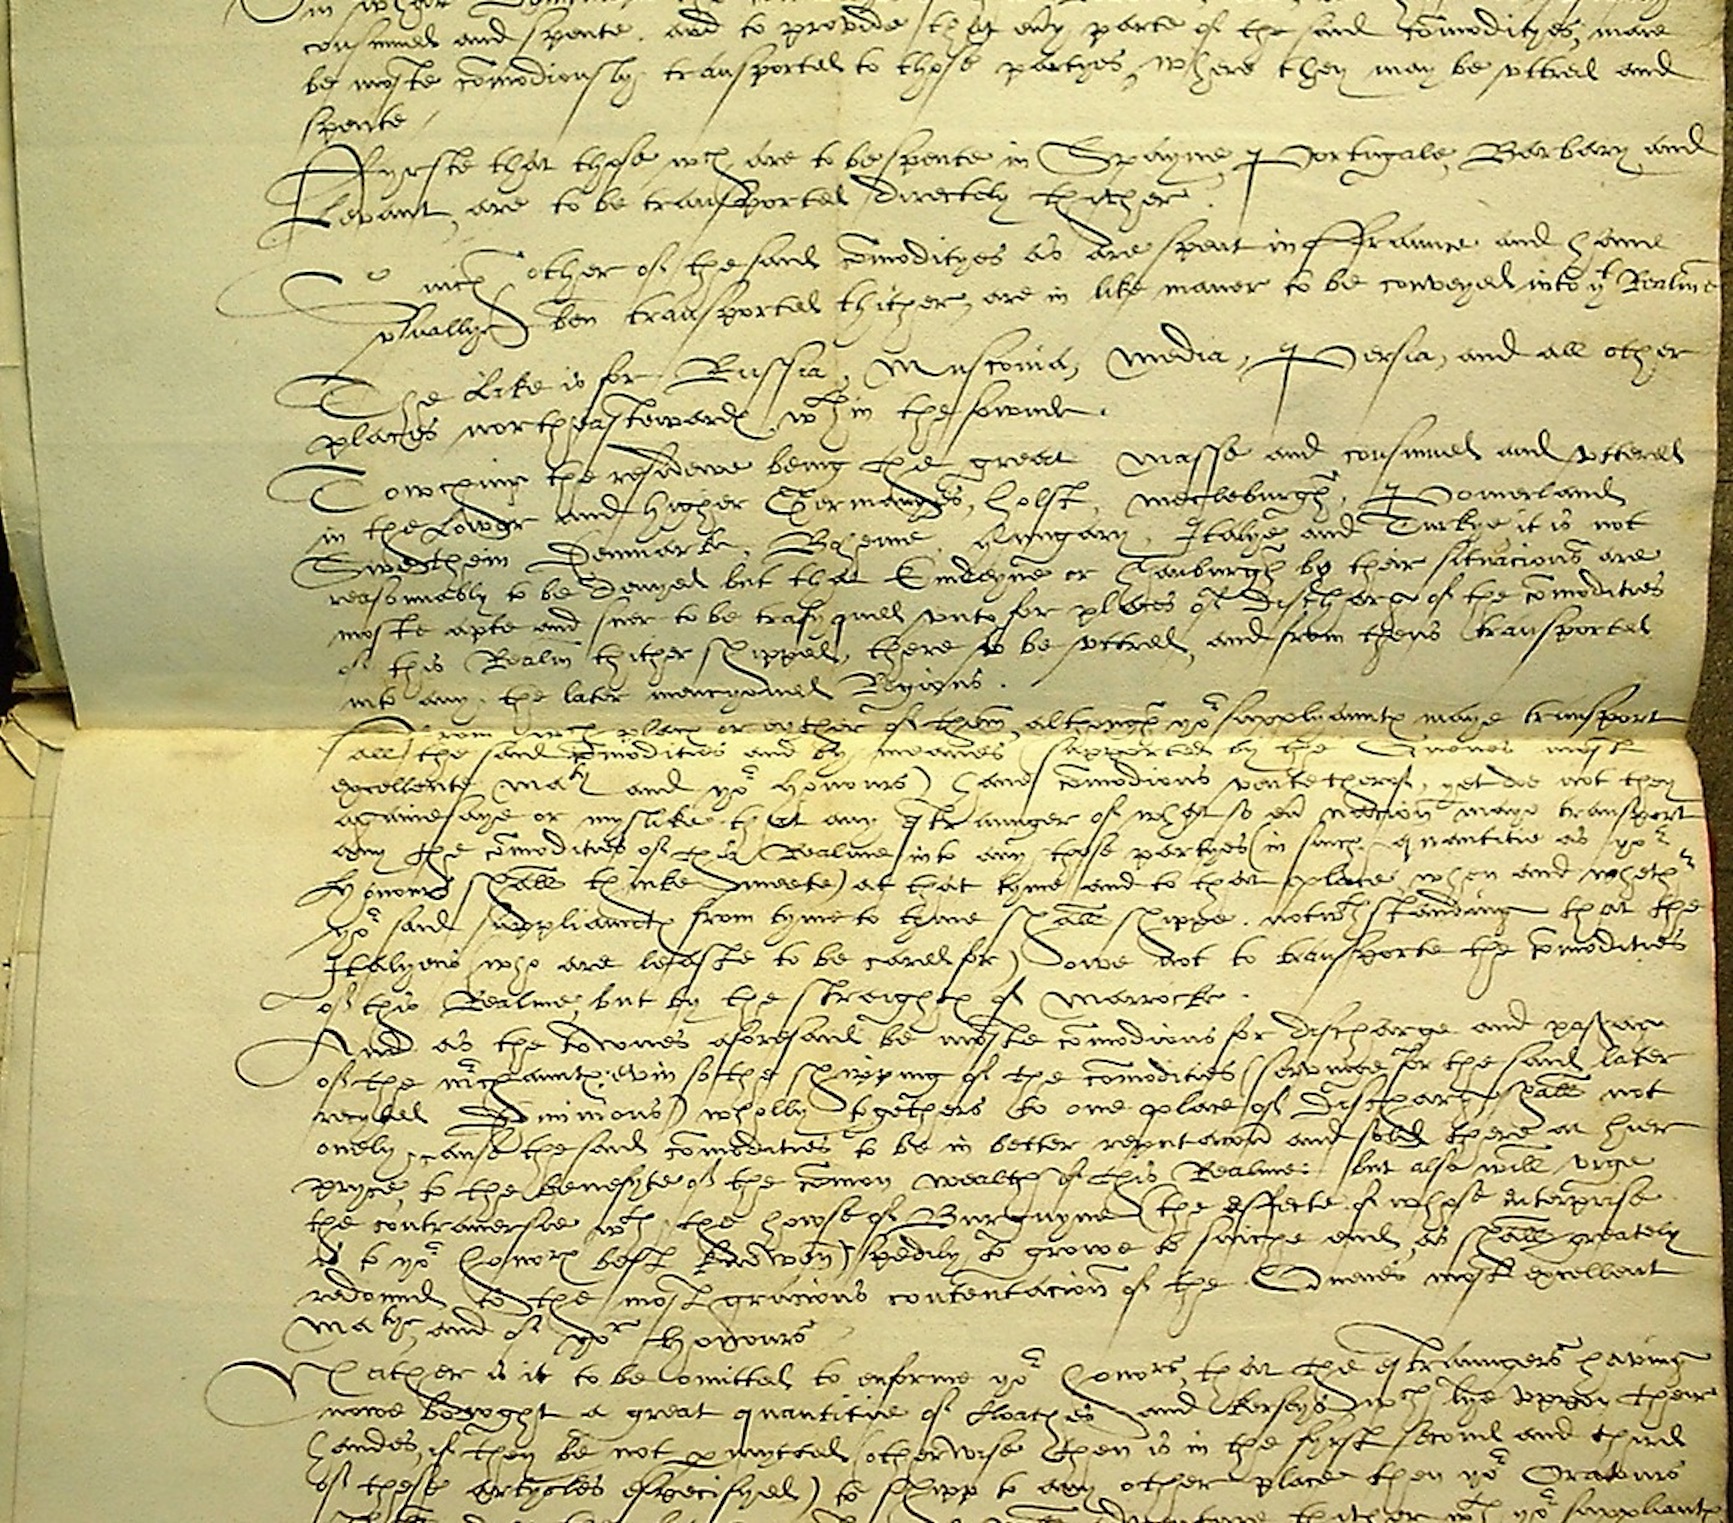 in what
consumed and spente. and to provide that any parte of the said comodityes, maie
be moste comodiously transported to those partyes, where they may be uttred and
spente
Fyrste that those wch are to be spente in Spayne, Portugale, Barbary and
Levant, are to be transported directely thither.
Suche other of the said comodityes as are spent in Fraunce and have
usually ben transported thither, are in like maner to be conveyed into yt Realme
The like is for Russia, Muscovia, Media, Persia, and all other
places northeastewarde wthin the sownde.
Towching the resydewe being the great masse and consumed and uttered
in the Lower and higher Germanyes, Holst, Meckleburgh, Pomerland
Swethein Denmarke, Boheme, Hungary, Italye and Turkye it is not
reasonnably to be denyed but that Emdeyne or Hamburgh by their situacions are
moste apte and fuer to be trafyqued unto for places of discharge of the comodities
of this Realm thither shipped, there to be uttred, and from thens transported
into any the later mencyoned Regions.
From wch place or eyther of them, although yor supplyaunts maye transport
all the said comodities and by meanes (supported by the Quenes most
excellente Matie and yor honours) have comodious vente therof, yet doe not they
againesaye or myslike that any straunger of what so ever nacion maye transport
any the comodities of this Realme into any those partyes (in such quantitie as yor
Honours shall thinke meete) at that tyme and to that place, when and whether
yor said suppliaunts from tyme to tyme shall shippe. notwthstanding that the
Italyens (who are leaste to be cared for) owe not to transporte the comodities
of this Realme, but by the straights of Marrocke.
And as the Townes aforesaid be moste comodious for discharge and passage
of the mchaunts: evin so the shipping of the comodities (serving for the said later
recyted Dominions) wholly togethers to one place of Discharge shall not
onely cause the said comodities to be in better reputacion and sold there at hier
pryce, to the benefyte of the comon wealth of this Realme: but also will urge
the contraversie wth the howse of Burguyne (the effecte of whose enterprise
is to yor honors best knowen) spedily to growe to suche end, as shall greately
redound to the most gracious contentacion of the Quenes most excellent
Matye, and of yor Honours
Nather is it to be omitted to enforme yor honors, that the straungers having
nowe bowght a great quantitie of cloathes and kerseys wch lye uppon their
handes, if they be not pmytted (otherwise then is in the fyrst second and third
of these artycles especifyed) to shipp to any other place then yor Oratours
thither wth yor suppliants